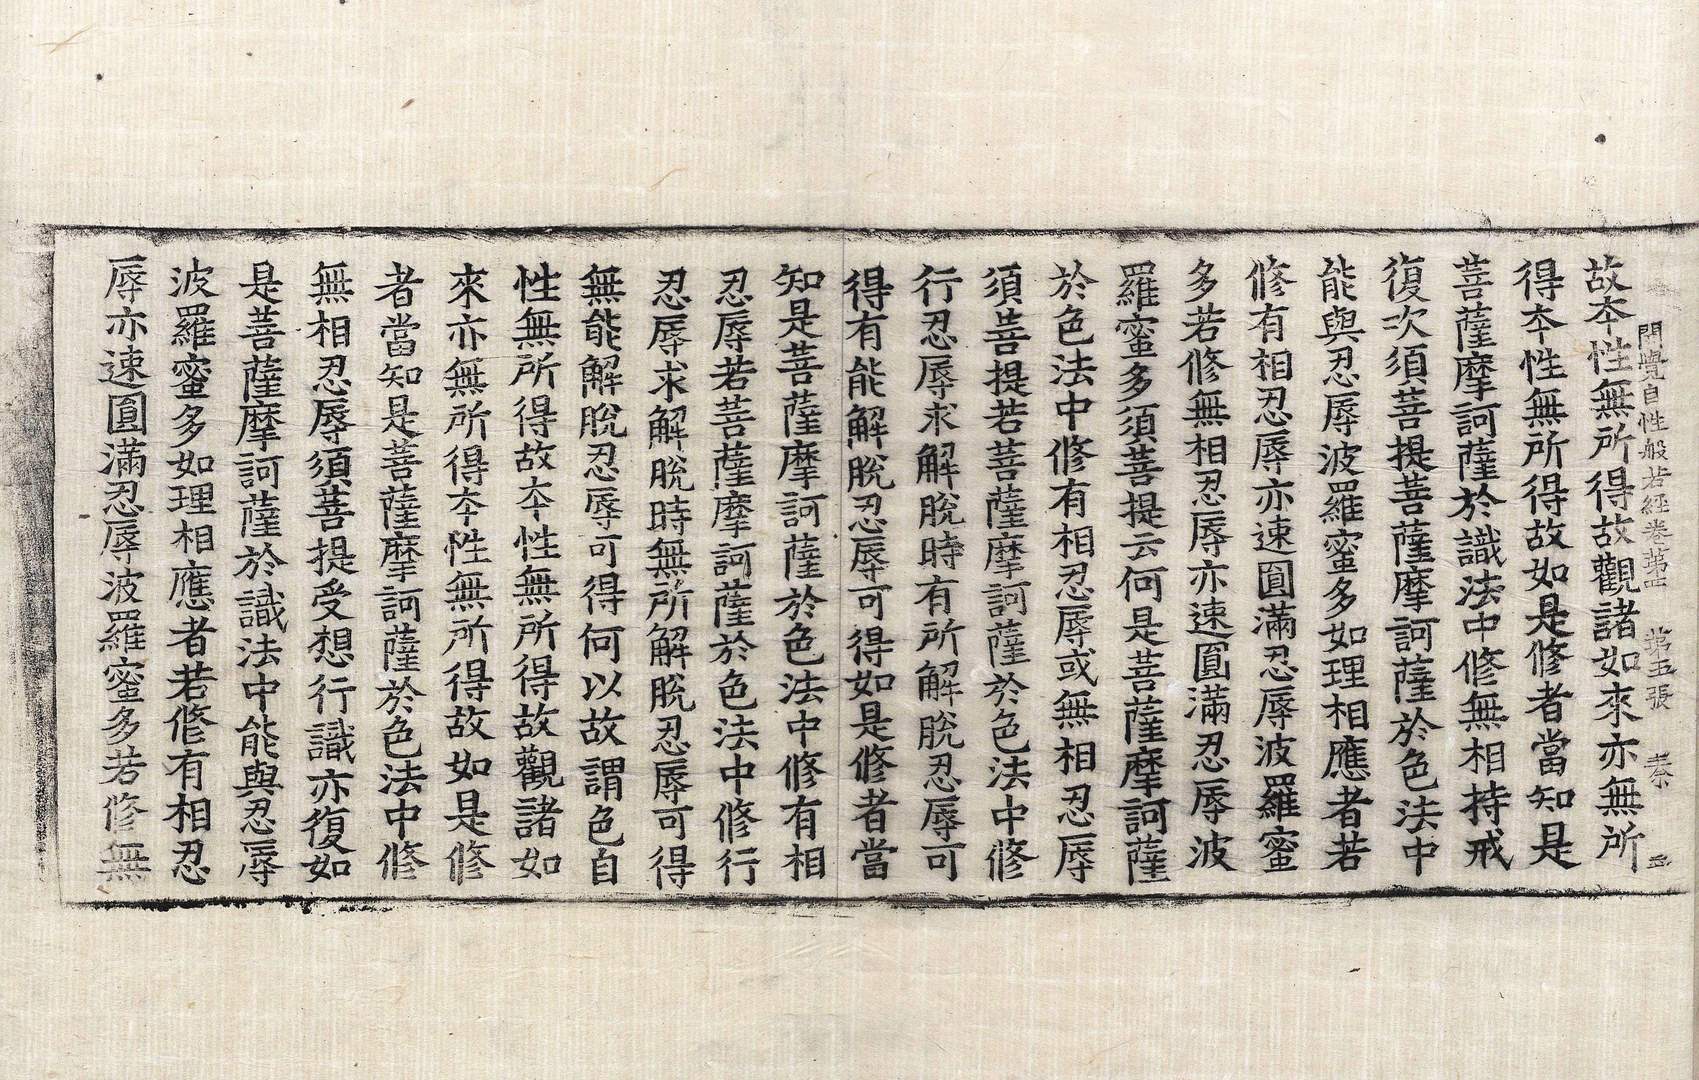 開覺自性般若經卷第 第五張
故夲性無所得故觀諸如來亦無所
得夲性無所得故如是修者當知是
菩薩摩訶薩於識法中修無相持戒
復次須菩提菩薩摩訶薩於色法中
能與忍辱波羅蜜多如理相應者若
修有相忍辱亦速圓滿忍辱波羅蜜
多若修無相忍辱亦速圓滿忍辱波
羅蜜多須菩提云何是菩薩摩訶薩
於色法中修有相忍辱或無相忍辱
須菩提若菩薩摩訶薩於色法中修
行忍辱求解脫時有所解脫忍辱可
得有能解脫忍辱可得如是修者當
知是菩薩摩訶薩於色法中修有相
忍辱若菩薩摩訶薩於色法中修行
忍辱求解脫時無所解脫忍辱可得
無能解脫忍辱可得何以故謂色自
性無所得故夲性無所得故觀諸如
來亦無所得夲性無所得故如是修
者當知是菩薩摩訶薩於色法中修
無相忍辱須菩提受想行識亦復如
是菩薩摩訶薩於識法中能與忍辱
波羅蜜多如理相應者若修有相忍
辱亦速圓滿忍辱波羅蜜多若修無